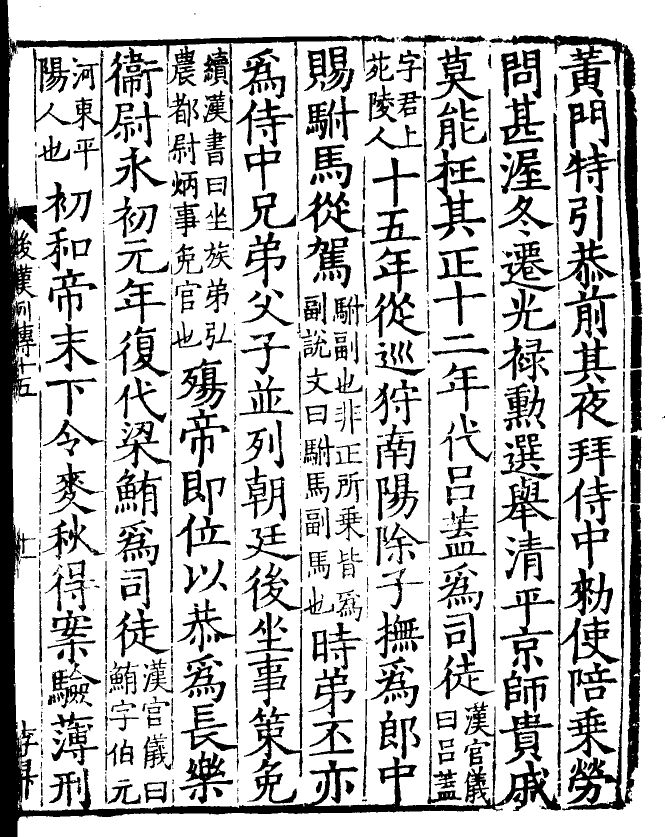 黃門特引恭前其夜拜侍中勑使陪乗勞
問甚渥冬遷光禄勲選舉清平京師貴戚
莫能枉其正十二年代呂蓋爲司徒漢官儀曰呂蓋
字君上苑陵人十五年從巡狩南陽除子撫爲郎中
賜駙馬從駕駙副也非正所乗皆爲副說文曰駙馬副馬也時弟丕亦
爲侍中兄弟父子並列朝廷後坐事策免
續漢書曰坐族弟弘農都尉炳事免官也殤帝即位以恭爲長樂
衞尉永初元年復代梁鮪爲司徒漢官儀曰鮪字伯元
河東平陽人也初和帝末下令麥秋得案驗薄刑
後漢列傳十五